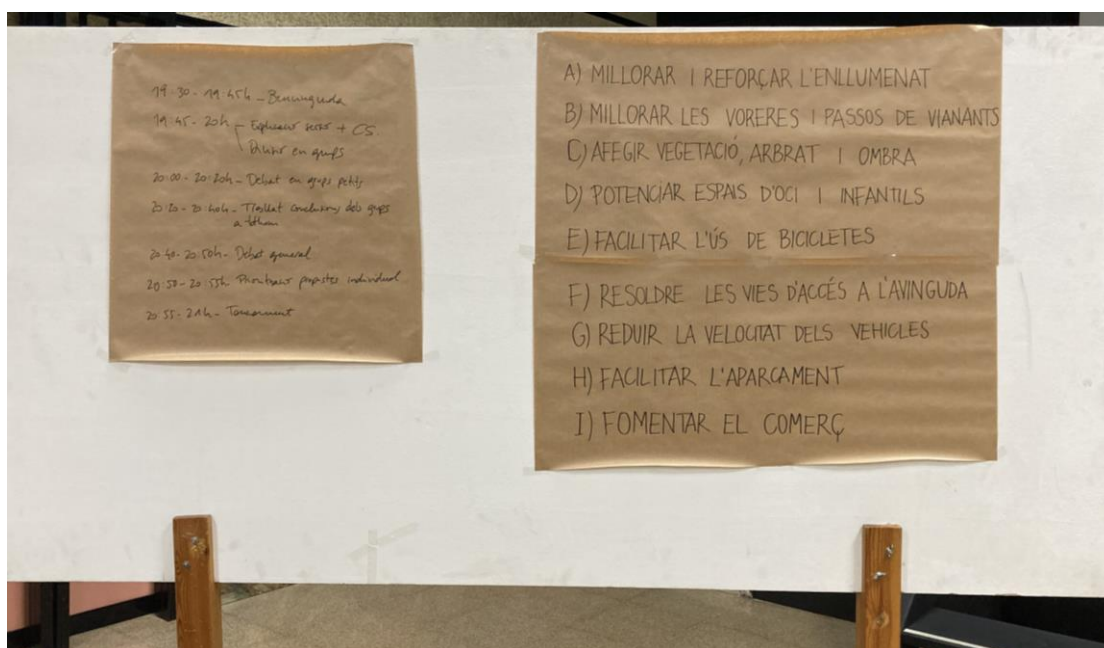 19:30 - 19:45h - Benvinguda
19:45 - 20h - Explicació sessió + CS.
Divisió en grups
20:00 - 20:20h - Debat en grups petits
20:20 - 20:40h - Trasllat conclusions dels grups
a tothom
20:40 - 20:50h - Debat general
20:50 - 20:55h - Priorització propostes individual
20:55 - 21h - Tancament
A) MILLORAR I REFORÇAR L'ENLLUMENAT
B) MILLORAR LES VORERES I PASSOS DE VIANANTS
C) AFEGIR VEGETACIÓ, ARBRAT I OMBRA
D) POTENCIAR ESPAIS D'OCI I INFANTILS
E) FACILITAR L'ÚS DE BICICLETES
F) RESOLDRE LES VIES D'ACCÉS A L'AVINGUDA
G) REDUIR LA VELOCITAT DELS VEHICLES
H) FACILITAR L'APARCAMENT
I) FOMENTAR EL COMERÇ